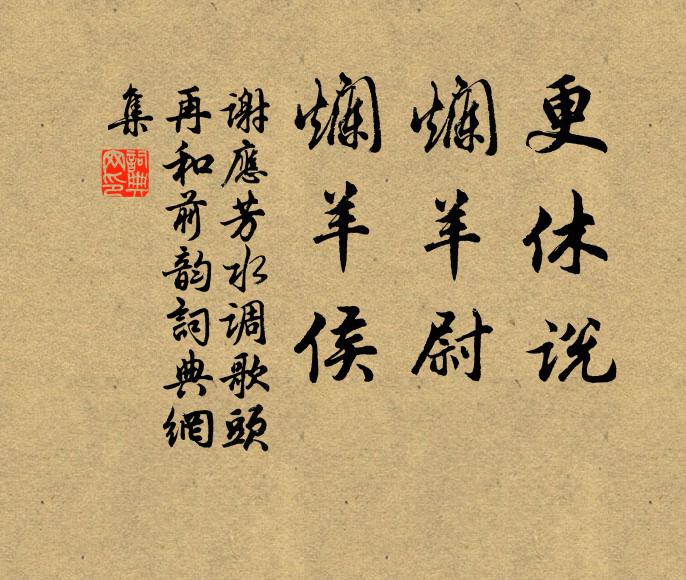 更休説
爛羊尉
爛羊侯
謝應芳水调歌頭
再和前韵詞典網
集
詞典網印